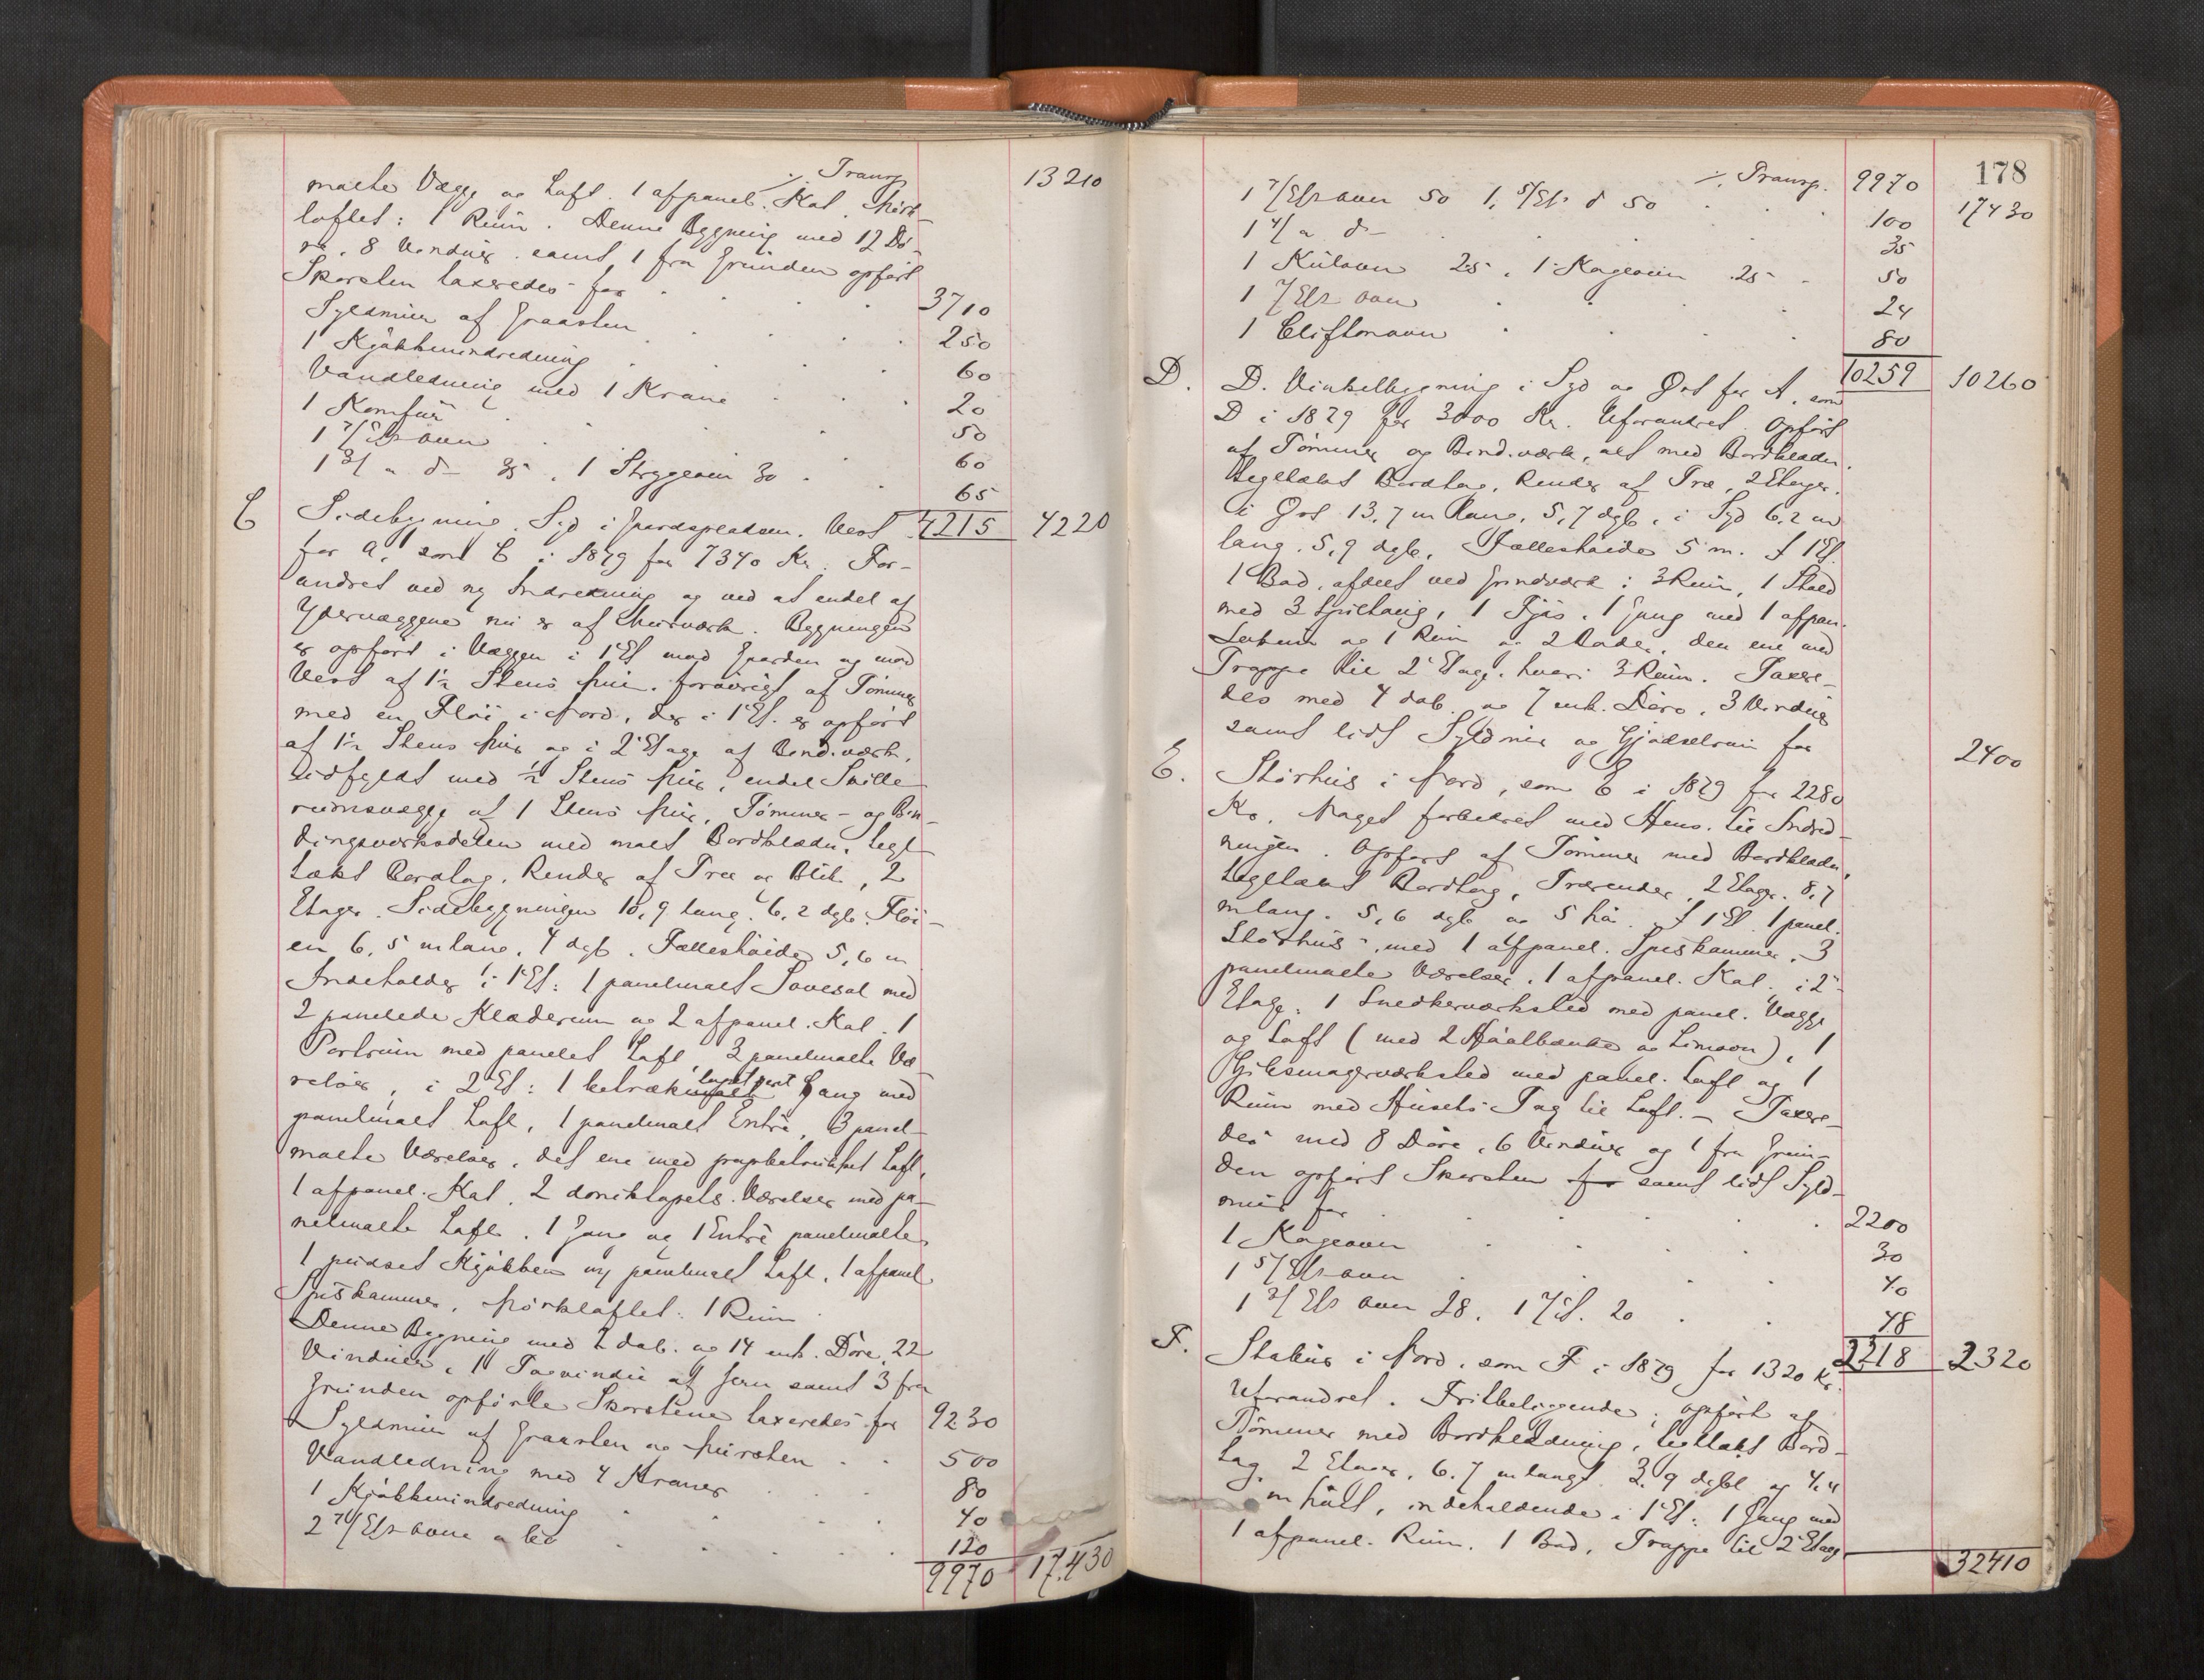 ·/. Transp. 13210
malte Vægge og Loft. 1 afpanel. Kot. Mørk-
loftet: 1 Rum. Denne Bygning med 12 Dø-
re, 8 Vinduer samt 1 fra Grunden opført
Skorsten taxeredes for 3710
Syldmur af Graasten 250
1 Kjøkkenindredning 60
Vandledning med 1 Krane 20
1 Komfur 50
1 7/ Etsovn 60
1 3/ " do 35, 1 Strygeovn 30 65
4215 4220
C Sidebygning, Syd i Gaardspladsen, Vest
for A, som C i 1879 for 7340 Kr. For-
andret ved ny Indredning og ved at endel af
Ydervæggene nu er af Murværk. Bygningen
er opført i Væggen i 1 Et mod Gaarden og mod
Vest af 1½ Stens Mur, forøvrigt af Tømmer
med en Fløi i Nord, der i 1 Et. er opført
af 1½ Stens Mur og i 2 Etage af Bind.værk,
udfyldt med ½ Stens Mur, endel Skille-
rumsvægge af 1 Stens Mur, Tømmer- og Bin-
dingsværksdelen med malt Bordklædn. Tegl-
tækt Bordtag. Render af Træ og Blik, 2
Etager. Sidebygningen 10,9 lang, 6,2 dyb. Fløi-
en 6,5 m lang, 4 dyb. Fælleshøide 5,6 m
Indeholder i 1 Et: 1 panelmalt Sovesal med
2 panelede Klæderum og 2 afpanel. Kot. 1
Portrum med panelet Loft, 3 panelmalte Væ-
relser, i 2 Et: 1 betrukmalt Gang med
panelmalt Loft, 1 panelmalt Entré, 3 panel-
malte Værelser, det ene med papbetrukket Loft,
1 afpanel. Kot, 2 doniktapets. Værelser med pa-
nelmalte Loft. 1 Gang og 1 Entré panelmalte
1 pudset Kjøkken m/ panelmalt Loft, 1 afpanel.
Spiskammer. Mørkloftet: 1 Rum.
Denne Bygning med 2 dob. og 14 enk. Døre, 22
Vinduer, 1 Tagvindu af Jern samt 3 fra
Grunden opførte Skorstene taxeredes for 9230
Syldmur af Graasten og Mursten 500
Vandledning med 4 Kraner 80
1 Kjøkkenindredning 40
2 7/ Etsovne a 60 120
9970 17.430
178
·/. Transp. 9970 17430
1 7/Etsovn 50 1, 5/Ets do 50 100
1 4/ " do 35
1 Kulovn 25, 1 Kogeovn 25 50
1 7 Ets ovn 24
1 Cliftonovn 80
10259 10260
D. D. Vinkelbygning i Syd og Øst for A, som
D i 1879 for 3000 Kr. Uforandret. Opført
af Tømmer og Bind.værk, alt med Bordklædn.
Tegltækt Bordtag, Render af Træ, 2 Etager.
i Øst 13,7 m lang, 5,7 dyb, i Syd 6,2 m
lang, 5,9 dyb, Fælleshøide 5 m. I 1 Et.
1 Bod, afdelt ved Grindværk i 3 Rum, 1 Stald
med 3 Spiltaug, 1 Fjøs, 1 Gang med 1 afpan.
Lukum og 1 Rum og 2 Boder, den ene med
Trappe til 2 Etage, hvori 3 Rum. Taxere-
des med 4 dob. og 7 enk. Døre, 3 Vinduer
samt lidt Syldmur og Gjødselrum for 2400
E. Størhus i Nord, som E i 1879 for 2280
Kr. Noget forbedret med Hens. til Indred-
ningen. Opført af Tømmer med Bordklædn,
tegltækt Bordtag, Trærender, 2 Etager. 8,7
m lang, 5,6 dyb og 5 høi. I 1 Et. 1 panel.
Størhus, med 1 afpanel. Spiskammer, 3
panelmalte Værelser, 1 afpanel. Kot. i 2
Etage: 1 Snedkerværksted med panel. Vægge
og Loft (med 2 Høvlbænke og Limovn), 1
Gibsmagerværksted med panel. Loft og 1
Rum med Husets Tag til Loft. – Taxere-
des med 8 Døre, 6 Vinduer og 1 fra Grun-
den opført Skorsten for samt lidt Syld-
mur for 2200
1 Kogeovn 30
1 5/ Etsovn 40
1 3/ Ets ovn 28. 1 7/ Et. 20 48
2318 2320
F. Stabur i Nord, som F i 1879 for 1320 Kr.
Uforandret. Fritbeliggende, opført af
Tømmer med Bordklædning, tegltækt Bord-
tag. 2 Etager, 6,7 m langt 3,9 dybt og 4,4
m høit, indeholdende i 1 Et: 1 Gang med
1 afpanel. Rum, 1 Bod, Trappe til 2 Etage
32410